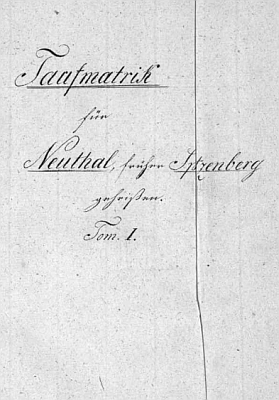 Taufmatrik
für
Neuthal, früher Spzenberg
geheißen.
Tom. I.